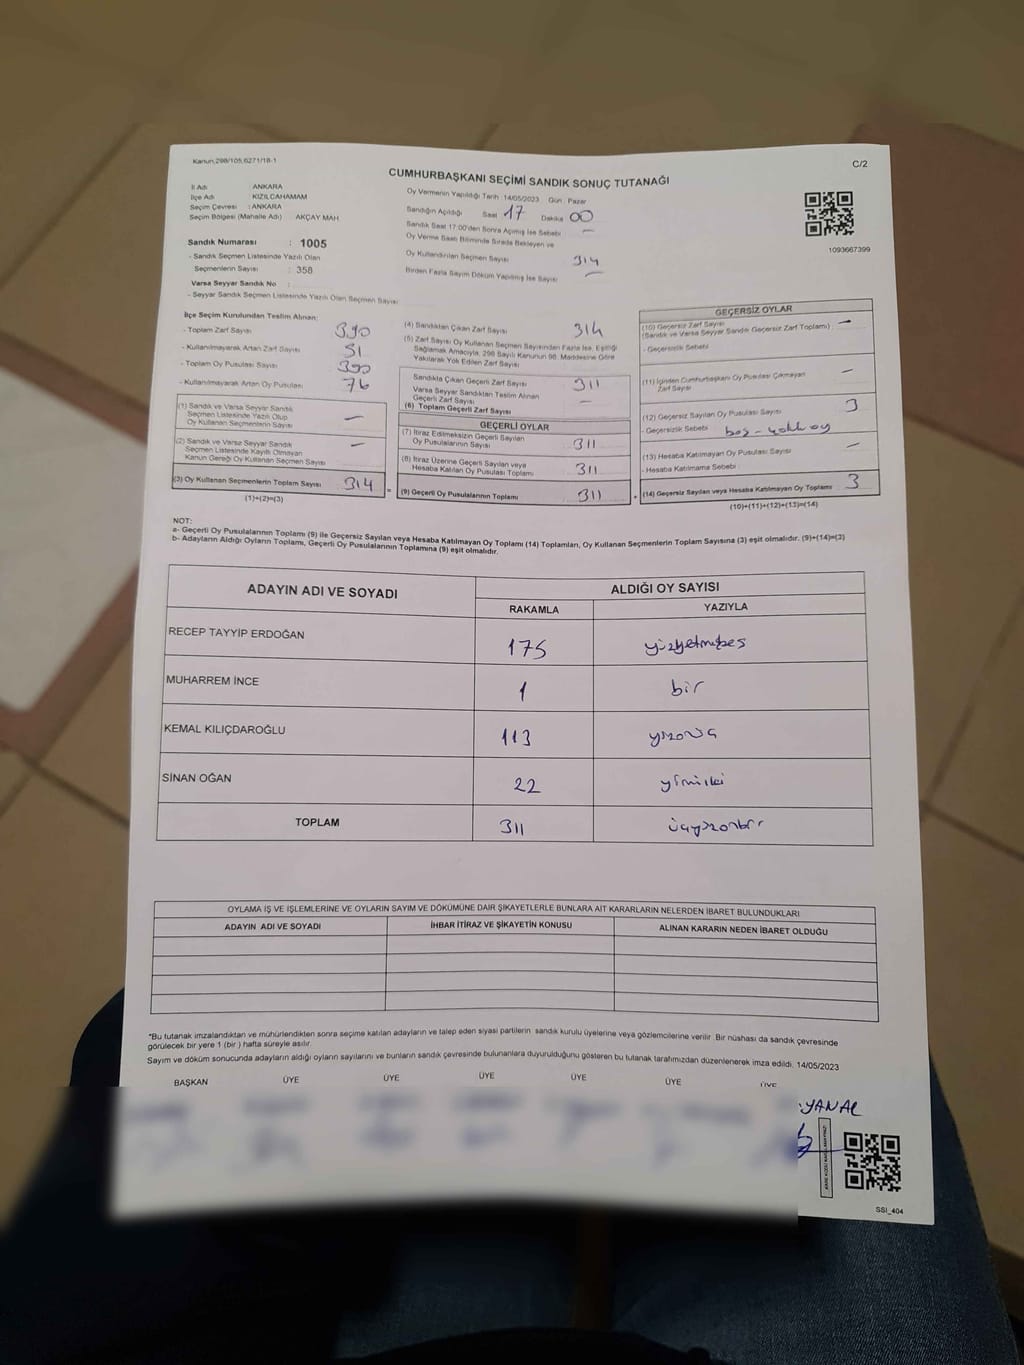 Kanun,298/105,6271/18-1
C/2
CUMHURBAŞKANI SEÇİMİ SANDIK SONUÇ TUTANAĞI
İl Adı ANKARA
İlçe Adı KIZILCAHAMAM
Seçim Çevresi : ANKARA
Seçim Bölgesi (Mahalle Adı) AKÇAY MAH
Sandık Numarası : 1005
- Sandık Seçmen Listesinde Yazılı Olan
Seçmenlerin Sayısı : 358
Varsa Seyyar Sandık No :
- Seyyar Sandık Seçmen Listesinde Yazılı Olan Seçmen Sayısı
Oy Vermenin Yapıldığı Tarih : 14/05/2023 Gün : Pazar
Sandığın Açıldığı Saat 17 Dakika 00
Sandık Saat 17:00'den Sonra Açılmış İse Sebebi —
Oy Verme Saati Bitiminde Sırada Bekleyen ve
Oy Kullandırılan Seçmen Sayısı 314
Birden Fazla Sayım Döküm Yapılmış İse Sayısı —
1093667399
İlçe Seçim Kurulundan Teslim Alınan:
- Toplam Zarf Sayısı 390
- Kullanılmayarak Artan Zarf Sayısı
- Toplam Oy Pusulası Sayısı 390
- Kullanılmayarak Artan Oy Pusulası 76
(1) Sandık ve Varsa Seyyar Sandık
Seçmen Listesinde Yazılı Olup
Oy Kullanan Seçmenlerin Sayısı —
(2) Sandık ve Varsa Seyyar Sandık
Seçmen Listesinde Kayıtlı Olmayan
Kanun Gereği Oy Kullanan Seçmen Sayısı —
(3) Oy Kullanan Seçmenlerin Toplam Sayısı 314
(1)+(2)=(3)
(4) Sandıktan Çıkan Zarf Sayısı 314
(5) Zarf Sayısı Oy Kullanan Seçmen Sayısından Fazla İse, Eşitliği
Sağlamak Amacıyla, 298 Sayılı Kanunun 98. Maddesine Göre
Yakılarak Yok Edilen Zarf Sayısı
Sandıkta Çıkan Geçerli Zarf Sayısı 311
Varsa Seyyar Sandıktan Teslim Alınan
Geçerli Zarf Sayısı —
(6) Toplam Geçerli Zarf Sayısı
GEÇERLİ OYLAR
(7) İtiraz Edilmeksizin Geçerli Sayılan
Oy Pusulalarının Sayısı 311
(8) İtiraz Üzerine Geçerli Sayılan veya
Hesaba Katılan Oy Pusulası Toplamı 311
(9) Geçerli Oy Pusulalarının Toplamı 311
GEÇERSİZ OYLAR
(10) Geçersiz Zarf Sayısı —
(Sandık ve Varsa Seyyar Sandık Geçersiz Zarf Toplamı)
- Geçersizlik Sebebi
(11) İçinden Cumhurbaşkanı Oy Pusulası Çıkmayan —
Zarf Sayısı
(12) Geçersiz Sayılan Oy Pusulası Sayısı 3
- Geçersizlik Sebebi boş - oy
(13) Hesaba Katılmayan Oy Pusulası Sayısı —
- Hesaba Katılmama Sebebi
(14) Geçersiz Sayılan veya Hesaba Katılmayan Oy Toplamı 3
(10)+(11)+(12)+(13)=(14)
NOT:
a- Geçerli Oy Pusulalarının Toplamı (9) ile Geçersiz Sayılan veya Hesaba Katılmayan Oy Toplamı (14) Toplamları, Oy Kullanan Seçmenlerin Toplam Sayısına (3) eşit olmalıdır. (9)+(14)=(3)
b- Adayların Aldığı Oyların Toplamı, Geçerli Oy Pusulalarının Toplamına (9) eşit olmalıdır.
ADAYIN ADI VE SOYADI ALDIĞI OY SAYISI
RAKAMLA YAZIYLA
RECEP TAYYİP ERDOĞAN 175 yüzyetmişbeş
MUHARREM İNCE 1 bir
KEMAL KILIÇDAROĞLU 113
SİNAN OĞAN 22
TOPLAM 311 üçyüzonbir
OYLAMA İŞ VE İŞLEMLERİNE VE OYLARIN SAYIM VE DÖKÜMÜNE DAİR ŞİKAYETLERLE BUNLARA AİT KARARLARIN NELERDEN İBARET BULUNDUKLARI
ADAYIN ADI VE SOYADI İHBAR İTİRAZ VE ŞİKAYETİN KONUSU ALINAN KARARIN NEDEN İBARET OLDUĞU
*Bu tutanak imzalandıktan ve mühürlendikten sonra seçime katılan adayların ve talep eden siyasi partilerin sandık kurulu üyelerine veya gözlemcilerine verilir. Bir nüshası da sandık çevresinde
görülecek bir yere 1 (bir) hafta süreyle asılır.
Sayım ve döküm sonucunda adayların aldığı oyların sayılarını ve bunların sandık çevresinde bulunanlara duyurulduğunu gösteren bu tutanak tarafımızdan düzenlenerek imza edildi. 14/05/2023
BAŞKAN ÜYE ÜYE ÜYE ÜYE ÜYE ÜYE
YANAL
SSI_404